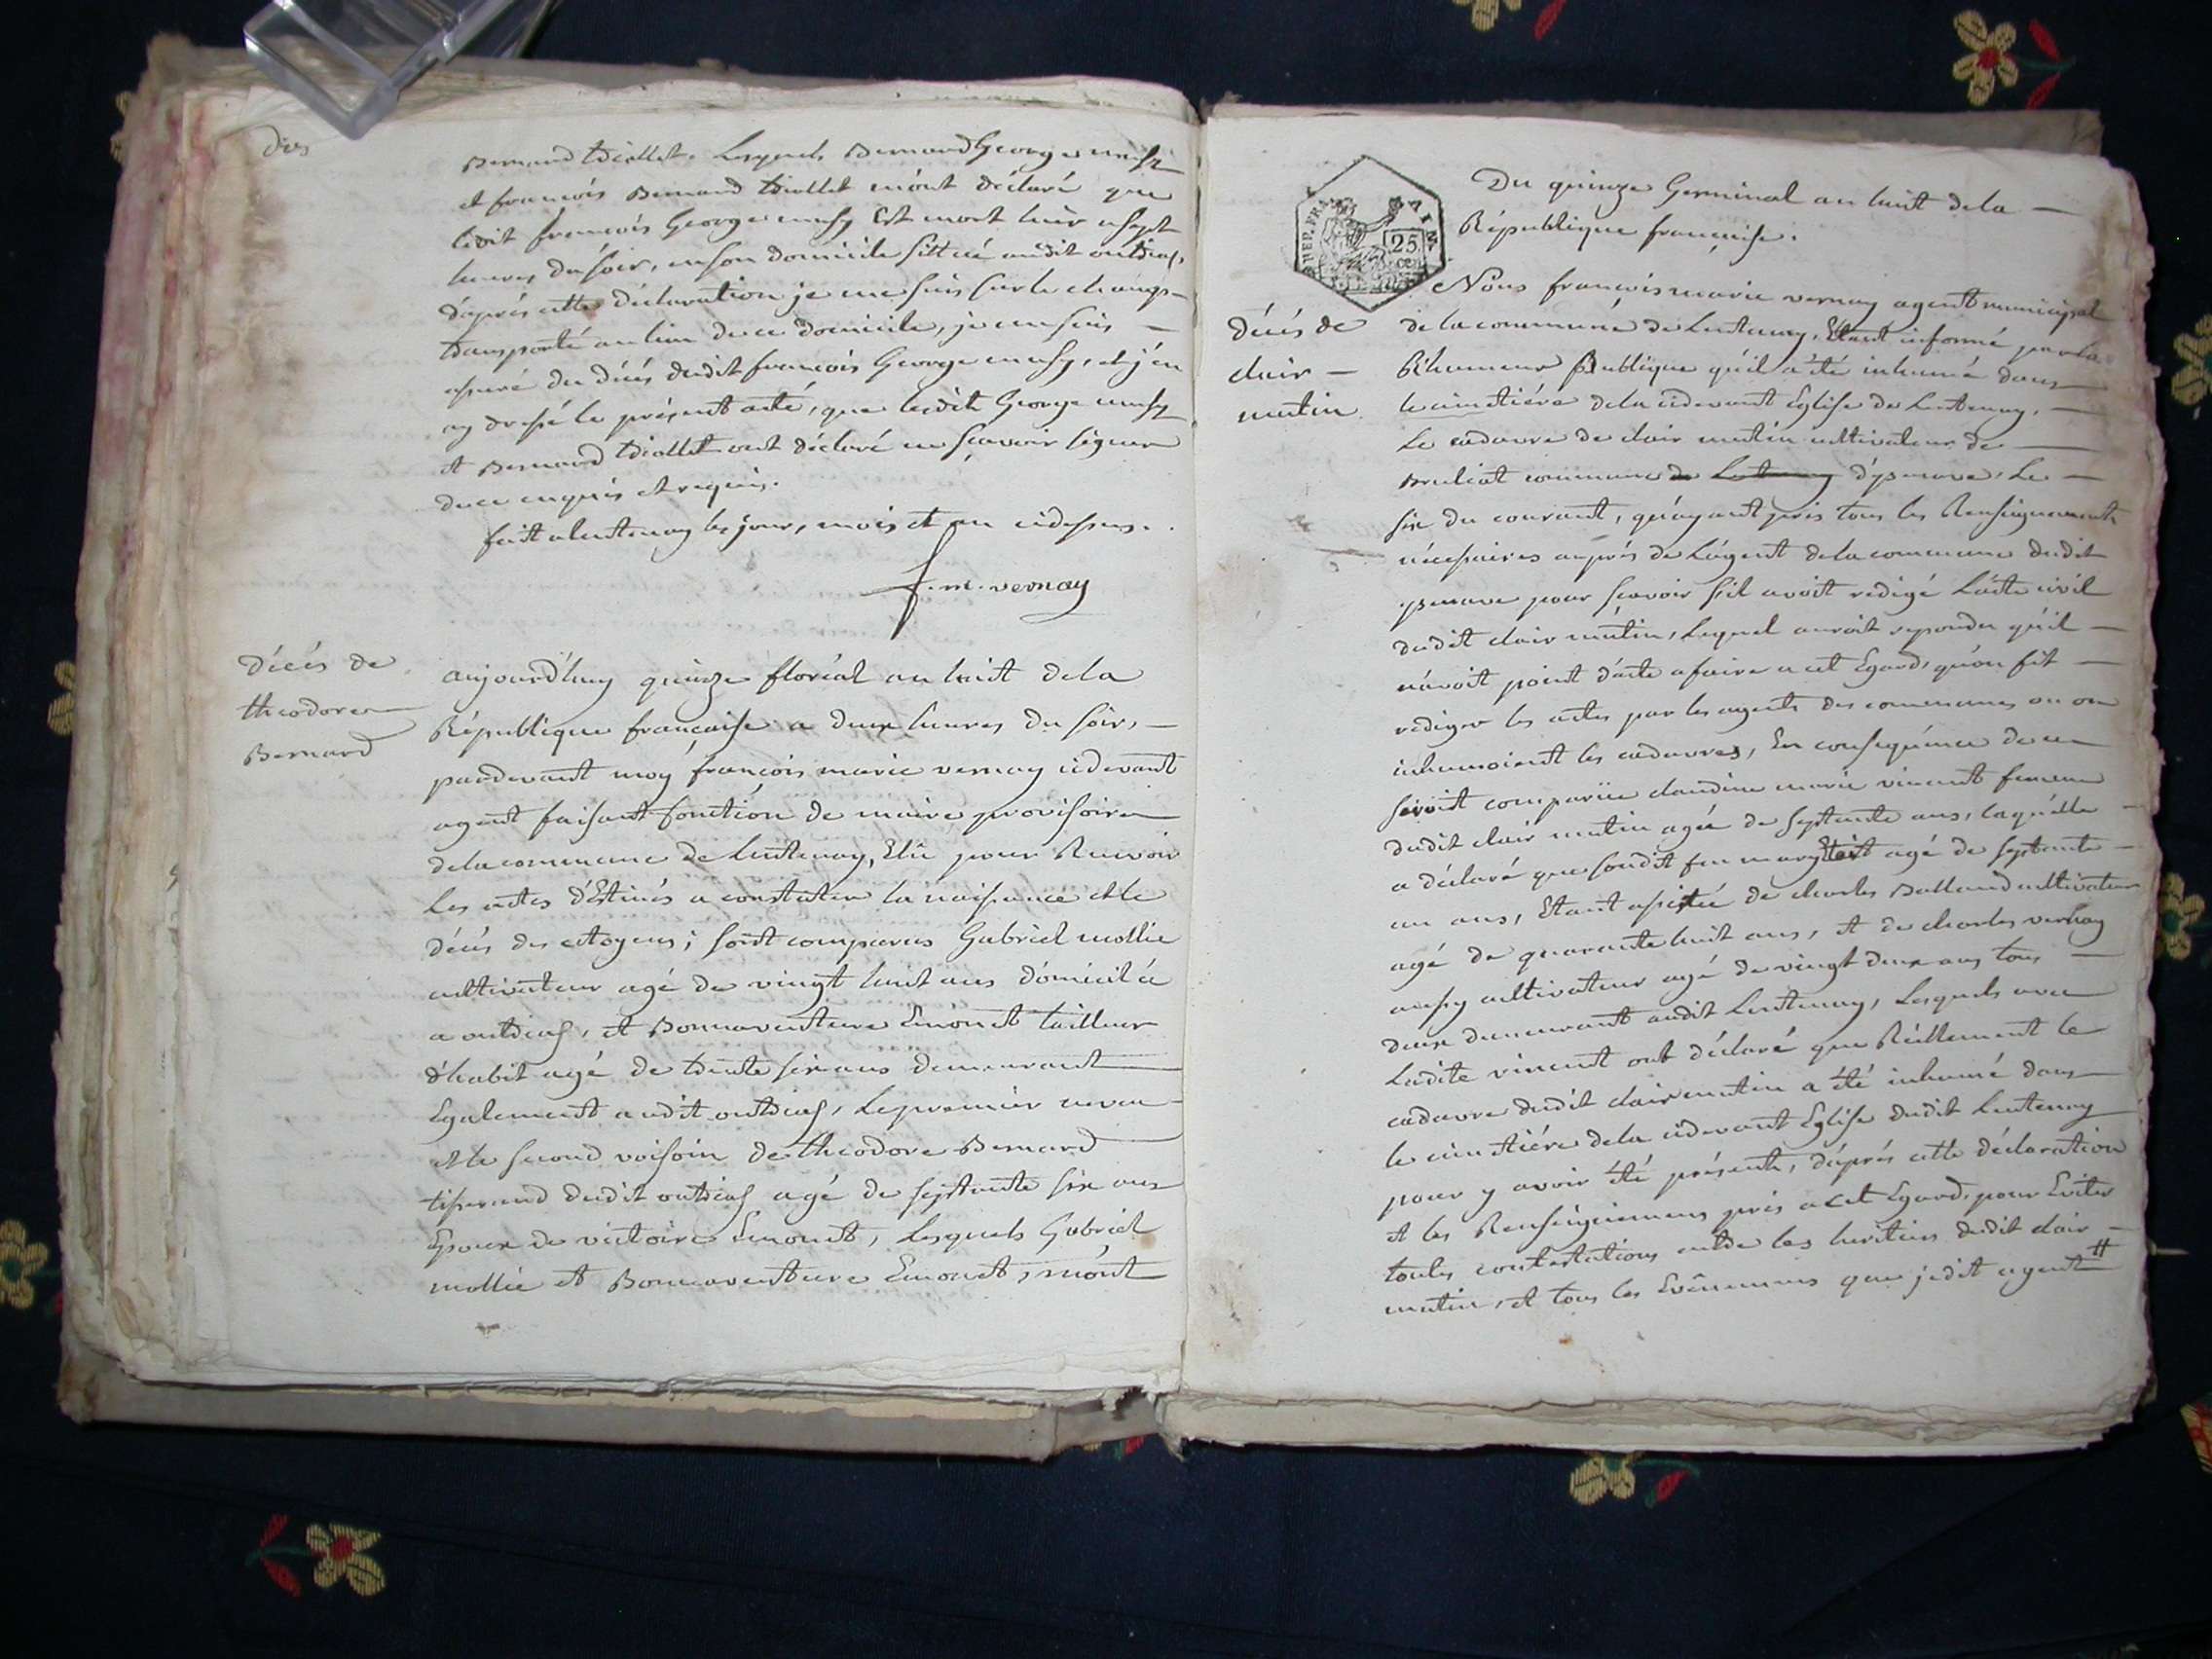 dies
Bernard triollet. Lesquels Bernard George
et francois Bernard triollet m'ont déclaré que
ledit francois George est mort hier a sept
heures du soir, en son domicile sittué audit outriaz,
d'aprés cette déclaration je me suis sur le champ
transporté au lieu de ce domicile, je me suis
assuré du décés dudit francois George et j'en
ay dressé le présent acte, que lesdits George
et Bernard triollet ont déclaré ne scavoir signer
de ce enquis et requis.
fait a lentenay les jour, mois et an cidessus.
f. m. vernay
décés de
theodore
Bernard
aujourd'huy quinze floréal an huit de la
République française a deux heures du soir,
pardevant moy françois marie vernay cidevant
agent faisant fonction de maire provisoire
de la commune de lentenay, Elû pour Recevoir
Les actes déstinés a constater la naissance et le
décés des citoyens; sont comparus Gabriel mollie
cultivateur agé de vingt huit ans domicilié
a outriaz, et Bonnaventure Emonet tailleur
d'habit agé de trente six ans demeurant
Egalement audit outriaz, le premier neveu
et le second voisoin de theodore Bernard
tisserand dudit outriaz agé de septante six ans
Epoux de victoire Emonet, Lesquels Gabriel
mollie et Bonnaventure Emonet, m'ont
REP. FRA
25
cen
Du quinze Germinal an huit de la
République française.
décés de
clair
mutin
Nous francois marie vernay agent municipal
de la commune de Lentenay, Etant informé par la
Rhumeur Publique qu'il a été inhumé dans
le cimetiére de la cidevant Eglise de Lentenay,
Le cadavre de clair mutin cultivateur de
Bruliat commune de Lentenay d'yzenave, Le
six du courant, qu'ayant pris tous les Renseignements
nécessaires auprés de L'agent de la commune dudit
yzenave pour scavoir s'il avoit redigé L'acte civil
dudit clair mutin, Lequel auroit repondu qu'il
n'avoit point d'acte a faire a cet Egard, qu'on fit
rediger les actes par les agents des communes ou on
inhumoient les cadavres, En conséquence de ce
seroit comparüe claudine marie vincent femme
dudit clair mutin agée de septante ans, laquelle
a déclaré que sondit feu mary Etoit agé de septante
un ans, Etant assistée de charles Balland cultivateur
agé de quarante huit ans, et de charles vernay
aussy cultivateur agé de vingt deux ans tous
deux demeurant audit Lentenay, Lesquels avec
Ladite vincent ont déclaré que Réellement le
cadavre dudit clair mutin a été inhumé dans
le cimetiére de la cidevant Eglise dudit Lentenay
pour y avoir été présents, d'aprés cette déclaration
et les Renseignemens pris a cet Egard, pour Eviter
toutes contestations entre les heritiers dudit clair
mutin, et tous les Evênemens que jedit agent #